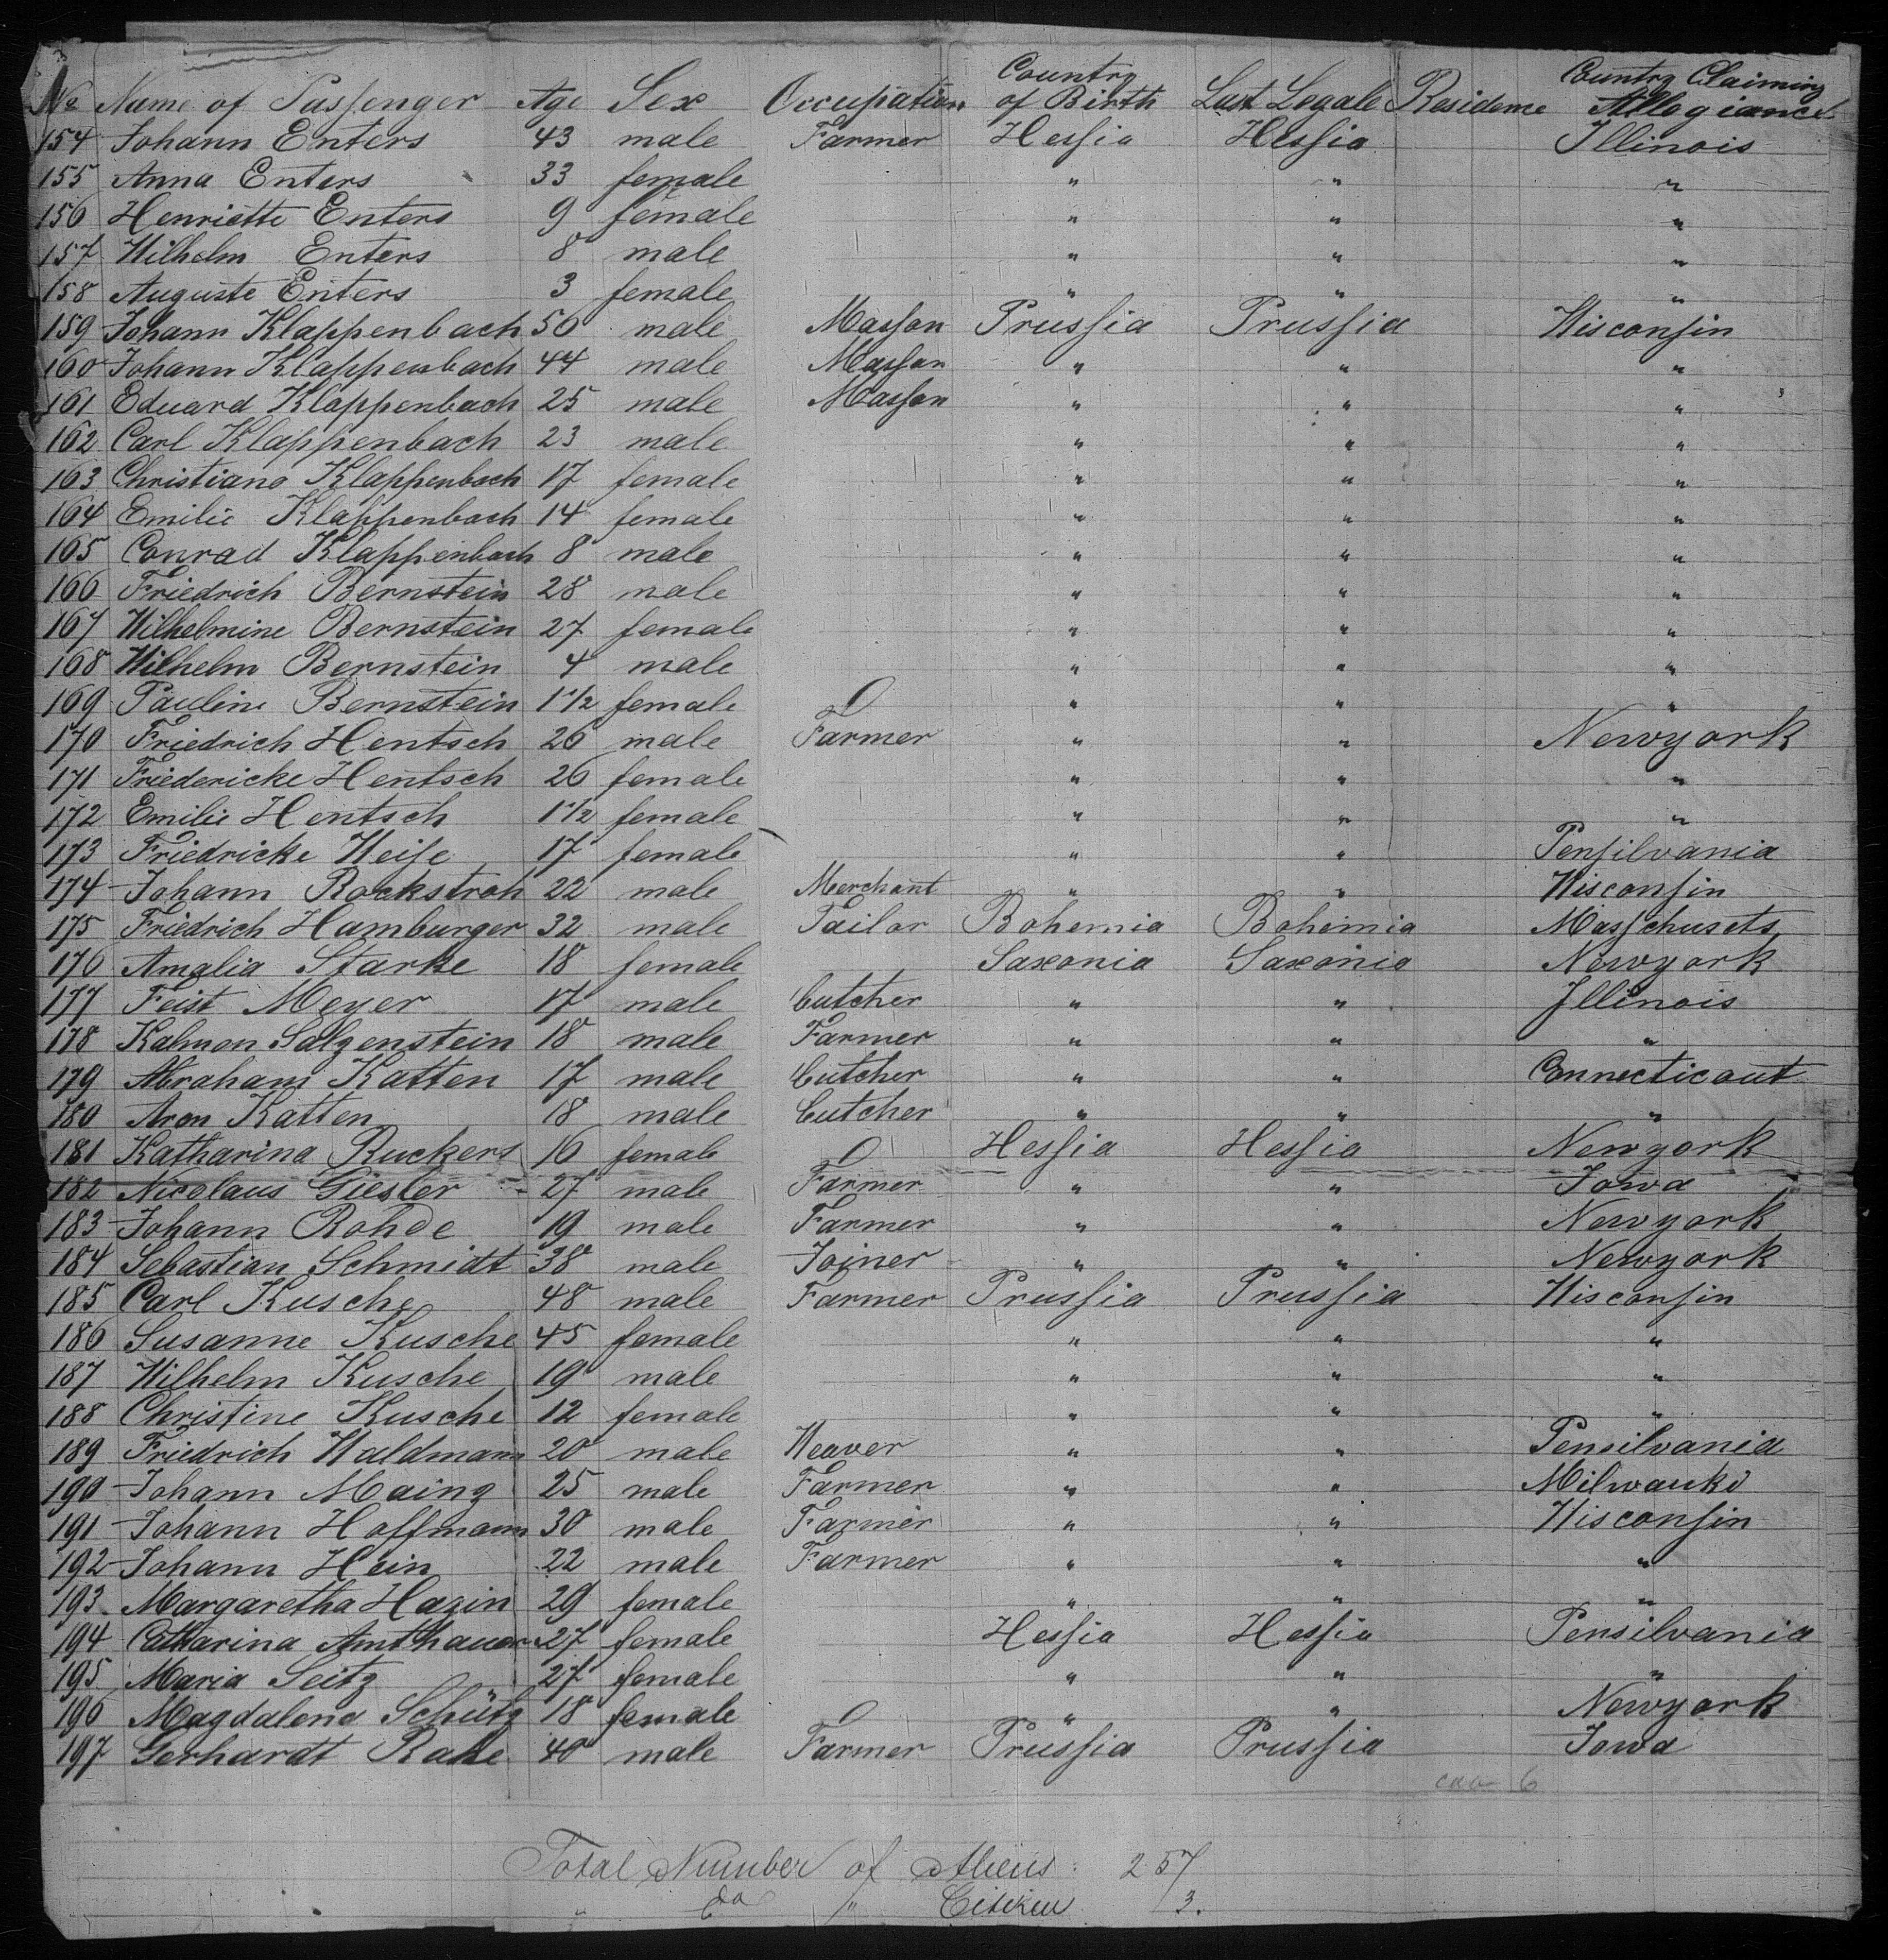 No Name of Passenger Age Sex Occupation Country of Birth Last Legale Residence Country Claiming Allegiance
154 Johann Enters 43 male Farmer Hessia Hessia Illinois
155 Anna Enters 33 female " " "
156 Henriette Enters 9 female " " "
157 Wilhelm Enters 8 male " " "
158 Auguste Enters 3 female " " "
159 Johann Klappenbach 50 male Masson Prussia Prussia Wisconsin
160 Johann Klappenbach 44 male Masson " " "
161 Eduard Klappenbach 25 male Masson " " "
162 Carl Klappenbach 23 male " " "
163 Christiano Klappenbach 17 female " " "
164 Emilie Klappenbach 14 female " " "
165 Conrad Klappenbach 8 male " " "
166 Friedrich Bernstein 28 male " " "
167 Wilhelmine Bernstein 27 female " " "
168 Wilhelm Bernstein 4 male " " "
169 Pauline Bernstein 1 1/2 female " " "
170 Friedrich Hentsch 26 male Farmer " " Newyork
171 Friedericke Hentsch 26 female " " "
172 Emilie Hentsch 1 1/2 female " " "
173 Friedricke Weise 17 female " " Pensilvania
174 Johann Rockstroh 22 male Merchant " " Wisconsin
175 Friedrich Hamburger 32 male Tailor Bohemia Bohemia Masschusets
176 Amalia Starke 18 female Saxonia Saxonia Newyork
177 Feist Meyer 17 male Cutcher " " Illinois
178 Kalmon Salzenstein 18 male Farmer " " "
179 Abraham Katten 17 male Cutcher " " Connecticaut
180 Aron Katten 18 male Cutcher " " "
181 Katharina Ruckers 16 female Hessia Hessia Newyork
182 Nicolaus Giesler 27 male Farmer " " Iowa
183 Johann Rohde 19 male Farmer " " Newyork
184 Sebastian Schmidt 38 male Joiner " " Newyork
185 Carl Kusche 48 male Farmer Prussia Prussia Wisconsin
186 Susanne Kusche 45 female " " "
187 Wilhelm Kusche 19 male " " "
188 Christine Kusche 12 female " " "
189 Friedrich Waldmann 20 male Weaver " " Pensilvania
190 Johann Mainz 25 male Farmer " " Milwauki
191 Johann Hoffmann 30 male Farmer " " Wisconsin
192 Johann Hein 22 male Farmer " " "
193 Margaretha Hazin 29 female " " "
194 Catharina Amthauer 27 female Hessia Hessia Pensilvania
195 Maria Seitz 27 female " " "
196 Magdalena Schütz 18 female " " Newyork
197 Gerhardt Rake 40 male Farmer Prussia Prussia Iowa
6
Total Number of Aliens: 257
" do " Citizen 3.